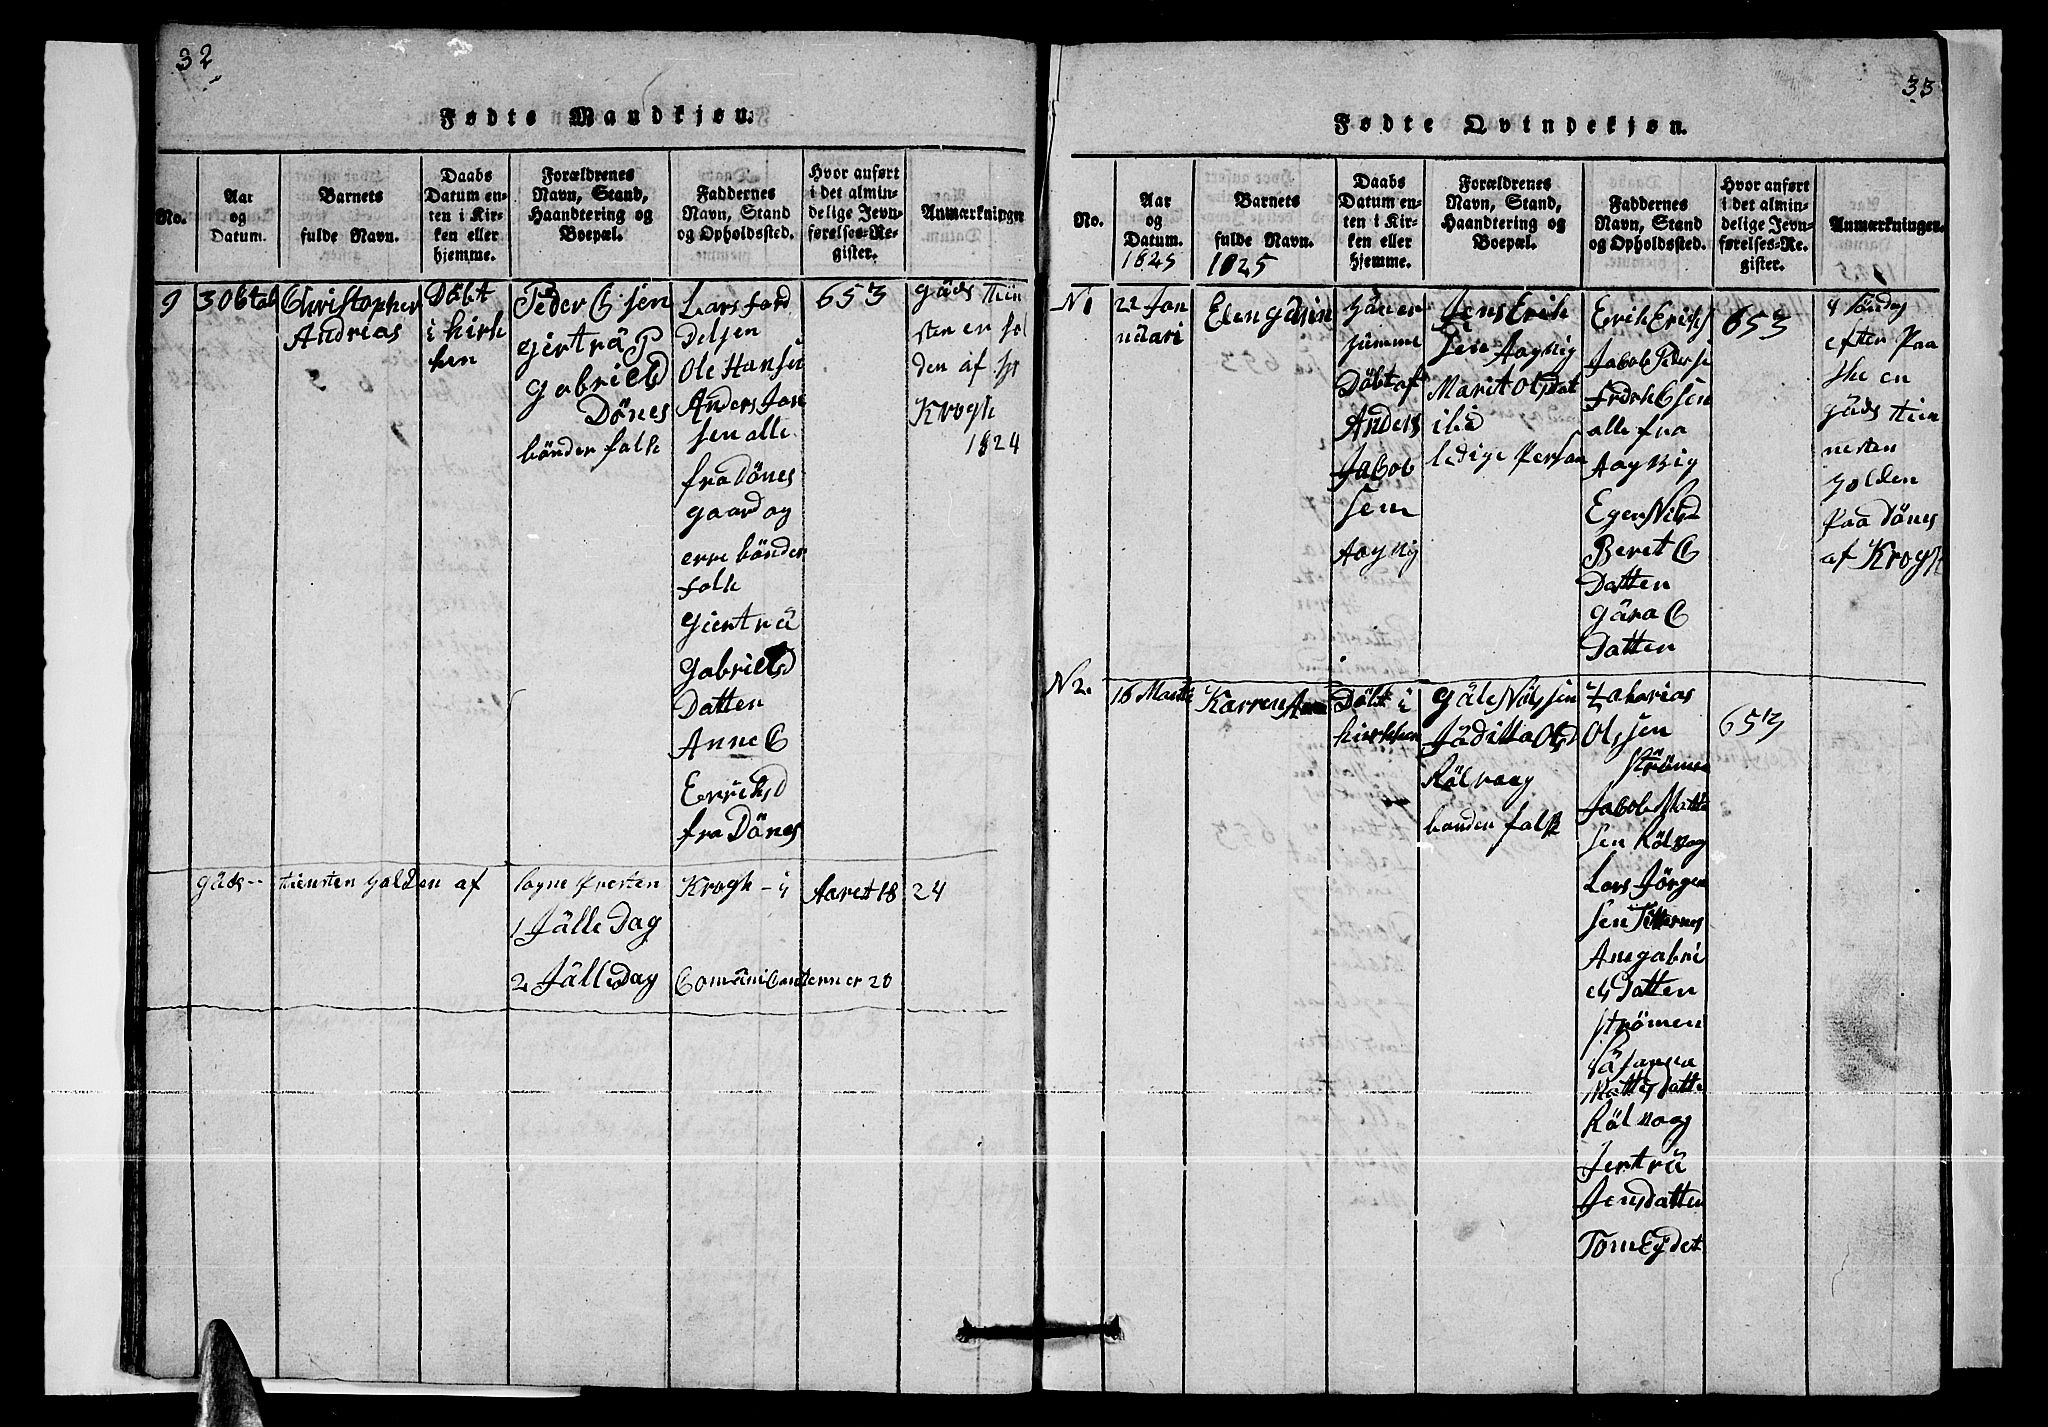 32
Fødte Mandkjøn.
No.
Aar
og
Datum.
Barnets
fulde Navn.
Daabs
Datum en-
ten i Kir-
ken eller
hjemme.
Forældrenes
Navn, Stand,
Haandtering og
Boepæl.
Faddernes
Navn, Stand
og Opholdssted.
Hvor anført
i det almin-
delige Jevn-
førelses-Re-
gister.
Anmærkninger
9
3 Obtob
Christopher
Andrias
Döbt
i Kirk
ken
Peder C Sen
Giertrü P
Gabrields
Dönes
bönder folk
Lars ford
Delsen
Ole Hansen
Anders Jon
sen alle
fra Dönes
gaard og
erre bönder
folk
Giertrü
Gabrields
Datten
Anne C
Erriksd
fra Dönes
653
Güds thin
sten er hol
den af Hr
Krogh
1824
Güds -- thiensten holden af Sogne Presten Krogh - i Aaret 1824
1 Jülle Dag
2 Jülle Dag Comünicanterner 20
33
Fødte Qvindekjøn.
No.
Aar
og
Datum.
1825
Barnets
fulde Navn.
1825
Daabs
Datum en-
ten i Kir-
ken eller
hjemme.
Forældrenes
Navn, Stand,
Haandtering og
Boepæl.
Faddernes
Navn, Stand
og Opholdssted.
Hvor anført
i det almin-
delige Jevn-
førelses-Re-
gister.
Anmærkninger.
N 1
22 Jan
uari
hiemme
Döbt af
Anders
Jacob
sen
Jens Erik
sen
Marit Olsdat
ledige Person
Erik Eriks
Jacob Peders
alle fra
Nilsd
Beret C
Datten
C
Datten
653
Söndag
efter Paa
ske en
Güds thien
nesten
holden
paa Dönes
af Krogh
N 2.
16 Marti
Karren Anne
Döbt i
kirkken
Nilssen
Jüditta Olsd
Rölvaag
bonder folk
Zakarias
Olssen
Strömen
Jacob Matti
sen Rölvaag
Lars Jörgen
sen
Ane gabri
els Datten
Strömen
Mattisdatte
Rölvaag
Jertrü
Jensdatten
653